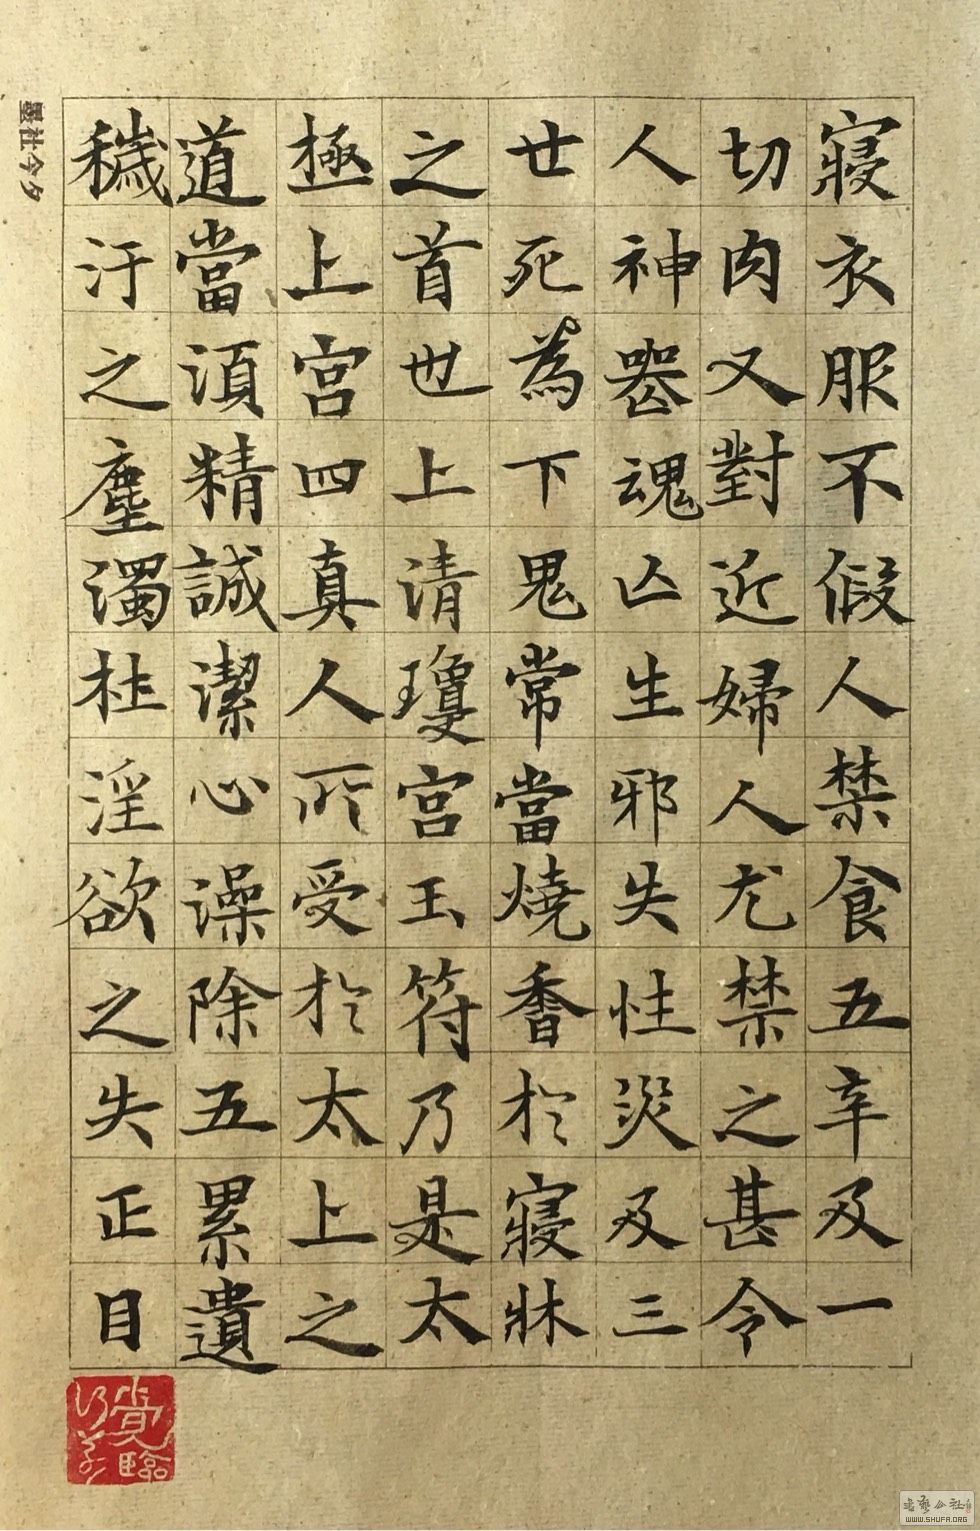 寢衣服不假人禁食五辛及一
切肉又對近婦人尤禁之甚令
人神喪魂亡生邪失性災及三
世死為下鬼常當燒香於寢牀
之首也上清瓊宮玉符乃是太
極上宮四真人所受於太上之
道當須精誠潔心澡除五累遺
穢汙之塵濁杜淫欲之失正目
墨社今夕
書藝公社
WWW.SHUFA.ORG